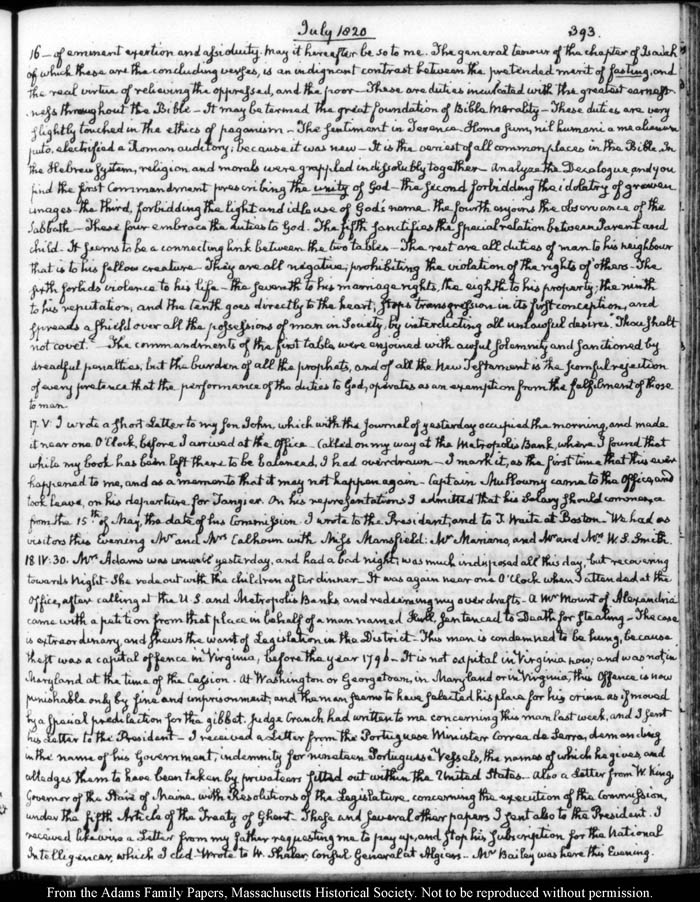 July 1820
393.
16 — of eminent exertion and assiduity. May it hereafter be so to me. The general tenour of the chapter of Isaiah
of which these are the concluding verses, is an indignant contrast between the pretended merit of fasting, and
the real virtue of relieving the oppressed, and the poor — These are duties inculcated with the greatest earnest-
ness throughout the Bible — It may be termed the great foundation of Bible Morality — These duties are very
slightly touched in the ethics of paganism — The sentiment in Terence. Homo sum, nil humani a me alienum
puto, electrified a Roman auditory; because it was new — It is the veriest of all common places in the Bible. In
the Hebrew System, religion and morals were grappled indissolubly together — Analyze the Decalogue and you
find the first Commandment prescribing the unity of God — the second forbidding the idolatry of graven
images — the third, forbidding the light and idle use of God's name. the fourth enjoins the observance of the
Sabbath — These four embrace the duties to God. The fifth sanctifies the special relation between Parent and
child — It seems to be a connecting link between the two tables — The rest are all duties of man to his neighbour
that is to his fellow creature — They are all negative, prohibiting the violation of the rights of others — The
sixth forbids violence to his life — the seventh to his marriage rights, the eighth to his property; the ninth
to his reputation, and the tenth goes directly to the heart, stops transgression in its first conception, and
spreads a shield over all the possessions of man in Society, by interdicting all unlawful desires. "Thou shalt
not covet." — The commandments of the first table were enjoined with awful solemnity and sanctioned by
dreadful penalties, but the burden of all the prophets, and of all the New Testament is the scornful rejection
of every pretence that the performance of the duties to God, operates as an exemption from the fulfilment of those
to man.
17. V. I wrote a short Letter to my son John, which with the Journal of yesterday occupied the morning, and made
it near one O'Clock, before I arrived at the Office — Called on my way at the Metropolis Bank, where I found that
while my book has been left there to be balanced, I had overdrawn — I mark it, as the first time that this ever
happened to me, and as a memento that it may not happen again — Captain Mullowny came to the Office, and
took leave, on his departure, for Tangier. On his representations I admitted that his Salary should commence
from the 15th of May, the date of his Commission. I wrote to the President, and to T. Waite at Boston. We had as
visitors this Evening Mr and Mrs Calhoun with Miss Mansfield: Mr and Mr and Mrs W. S. Smith.
18. IV:30. Mrs Adams was unwell yesterday, and had a bad night; was much indisposed all this day, but recovering
towards Night. She rode out with the children after dinner — It was again near one O'Clock when I attended at the
Office, after calling at the U.S. and Metropolis Banks, and redeeming my overdrafts — A Mr Mount of Alexandria
came with a petition from that place in behalf of a man named sentenced to Death for stealing — The case
is extraordinary, and shews the want of Legislation in the District — This man is condemned to be hung, because
theft was a capital offence in Virginia, before the year 1796 — It is not capital in Virginia now; and was not in
Maryland at the time of the Cession. At Washington or Georgetown, in Maryland or in Virginia, this Offence is now
punishable only by fine and imprisonment; and the man seems to have selected his place for his crime as if moved
by a special predilection for the gibbet. Judge Cranch had written to me concerning this man last week, and I sent
his Letter to the President — I received a Letter from the Portuguese Minister Correa de Serra, demanding
in the name of his Government, indemnity for nineteen Portuguese Vessels, the names of which he gives, and
alledges them to have been taken by privateers fitted out within the United States — Also a Letter from W. King,
Governor of the State of Maine, with Resolutions of the Legislature, concerning the execution of the Commission,
under the fifth Article of the Treaty of Ghent. These and several other papers I sent also to the President. I
received likewise a Letter from my father requesting me to pay up, and stop his subscription for the National
Intelligencer, which I did. Wrote to W. Shaler, Consul General at Algiers — Mr Bailey was here this Evening.
From the Adams Family Papers, Massachusetts Historical Society. Not to be reproduced without permission.